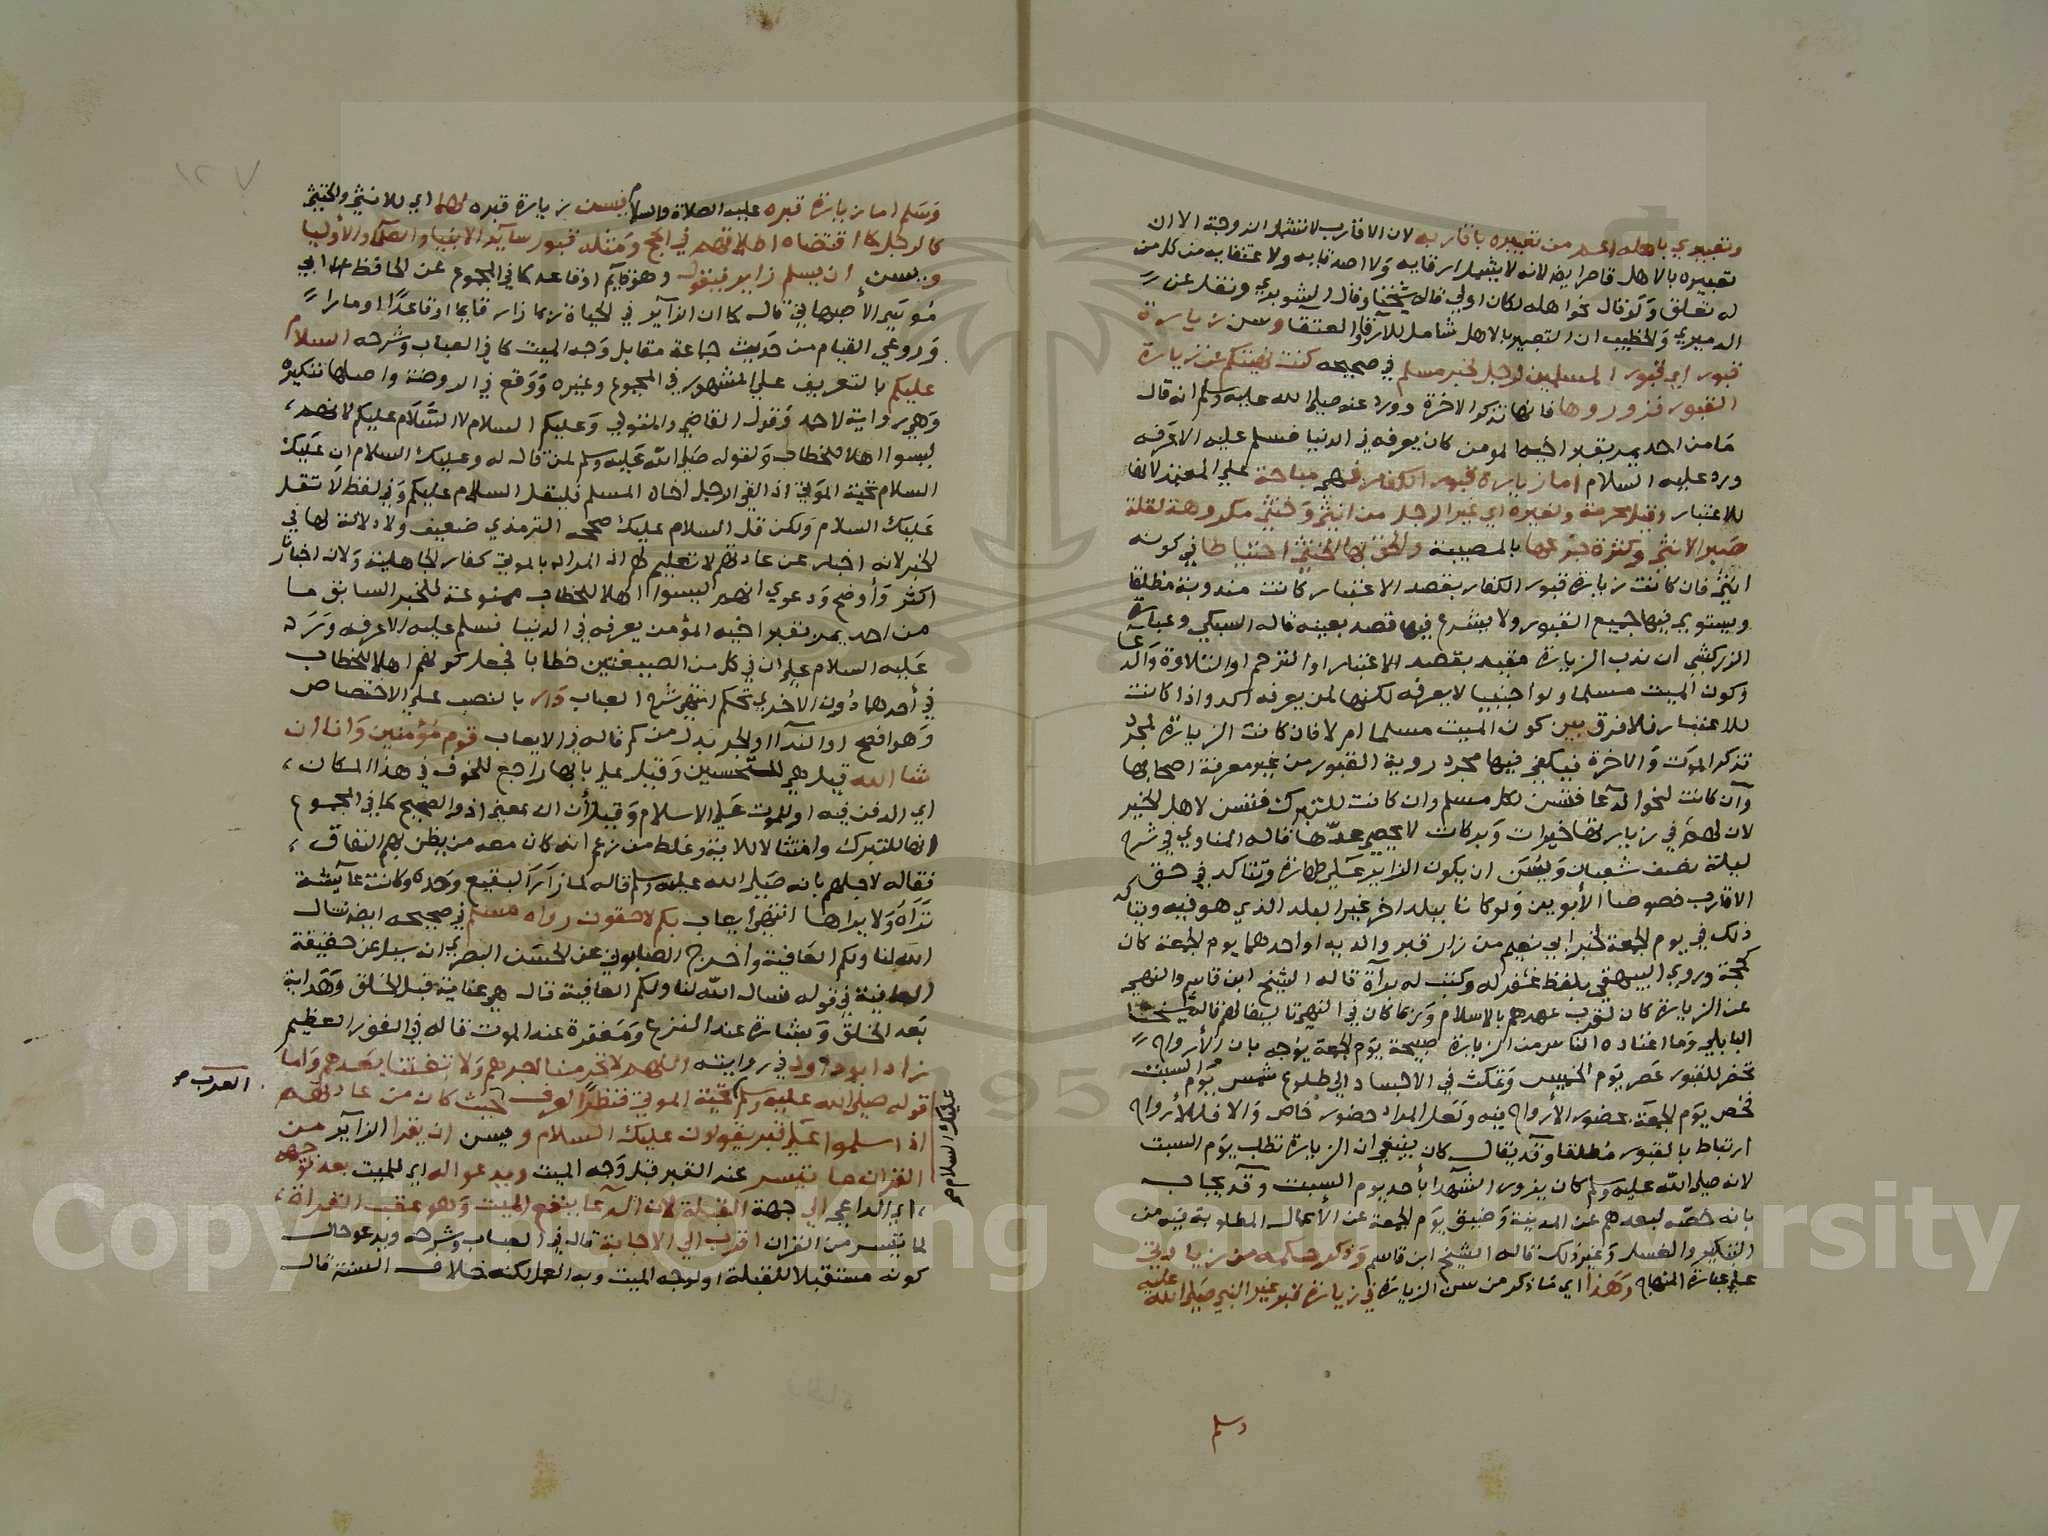 وتعبيري باهله اعم من تعبيره باقاربه لان الاقارب لا تشمل الزوجة الا ان
تعبيره بالاهل قاصر ايضا لانه لا يشمل ارقابه ولا اصدقايه ولا عتقايه من كل من
له تعلق ولو قال نحو اهله لكان اولى قاله شيخنا وقال الشوبري ونقل عن
الدميري والخطيب ان التعبير بالاهل شامل للارقا والعتقا وسن زيارة
قبور اي قبور المسلمين لرجل لخبر مسلم في صحيحه كنت نهيتكم عن زيارة
القبور فزوروها فانها تذكر الاخرة وورد عنه صلى الله عليه وسلم انه قال
ما من احد يمر بقبر اخيه المومن كان يعرفه في الدنيا فسلم عليه الا عرفه
ورد عليه السلام اما زيارة قبور الكفار فهي مباحة على المعتمد لانها
للاعتبار وقيل محرمة ولغيره اي غير الرجل من انثى وخنثى مكروهة لقلة
صبر الانثى وكثرة جزعها بالمصيبة والحق بها الخنثى احتياطا في كونه
انثى فان كانت زيارة قبور الكفار بقصد الاعتبار كانت مندوبة مطلقا
ويستوي فيها جميع القبور ولا يشرع فيها قصد بعينه قاله السبكي وعبارة
الزركشي ان ندب الزيارة مقيد بقصد الاعتبار او الترحم او التلاوة والدعا
وكون الميت مسلما ولو اجنبيا لا يعرفه لكنها لمن يعرفه اكد واذا كانت
للاعتبار فلا فرق بين كون الميت مسلما ام لا فان كانت الزيارة لمجرد
تذكر الموت والاخرة فيكفي فيها مجرد روية القبور من غير معرفة اصحابها
وان كانت لنحو الدعا فتسن لكل مسلم وان كانت للتبرك فتسن لاهل الخير
لان لهم في زيارتها خيرات وبركات لا يحصى عدها قاله المناوي في شرح
ليلة نصف شعبان ويسن ان يكون الزاير على طهارة وتتاكد في حق
الاقارب خصوصا الابوين ولو كانا ببلد اخر غير البلد الذي هو فيه ويتاكد
ذلك في يوم الجمعة لخبر ابي نعيم من زار قبر والديه او احدهما يوم الجمعة كان
كحجة وروى البيهقي بلفظ غفر له وكتب له براة قاله الشيخ ابن قاسم والنهي
عن الزيارة كان لقرب عهدهم بالاسلام وربما كان في النهي تاليفا لهم قاله شيخنا
البابلي وما اعتاده الناس من الزيارة صبيحة يوم الجمعة يوجه بان الارواح
تحضر للقبور عصر يوم الخميس وتمكث في الاجساد الى طلوع شمس يوم السبت
فخص يوم الجمعة بحضور الارواح فيه ولعل المراد حضور خاص والا فللارواح
ارتباط بالقبور مطلقا وقد يقال كان ينبغي ان الزيارة تطلب يوم السبت
لانه صلى الله عليه وسلم كان يزور الشهدا باحد يوم السبت وقد يجاب
بانه خصه لبعدهم عن المدينة وضيق يوم الجمعة عن الاعمال المطلوبة فيه من
التبكير والغسل وغير ذلك قاله الشيخ ابن قاسم وذكر حكمه من زيادتي
على عبارة المنهاج وهذا اي ما ذكر من سن الزيارة في زيارة قبر غير النبي صلى الله عليه
وسلم
وسلم اما زيارة قبره عليه الصلاة والسلام فيسن زيارة قبره لهما اي للانثى والخنثى
كالرجل كما اقتضاه اطلاقهم في الحج ومثله قبور ساير الانبيا والعلما والاوليا
ويسن ان يسلم زاير فيقول وهو قايم او قاعد كما في المجموع عن الحافظ ابي
موسى الاصبهاني قال كما ان الزاير في الحياة ربما زار قايما او قاعدا او مارا
وروي القيام من حديث جماعة مقابل وجه الميت كما في العباب وشرحه السلام
عليكم بالتعريف على المشهور في المجموع وغيره ووقع في الروضة واصلها تنكيره
وهي رواية لاحمد وقول القاضي والمتولي وعليكم السلام لا السلام عليكم لانهم
ليسوا اهلا للخطاب ولقوله صلى الله عليه وسلم لمن قال له وعليك السلام ان عليك
السلام تحية الموتى اذا لقي الرجل اخاه المسلم فليقل السلام عليكم وفي لفظ لا تقل
عليك السلام ولكن قل السلام عليك صححه الترمذي ضعيف ولا دلالة لها في
الخبر لانه اخبار عن عادتهم لا تعليم لهم اذ المراد بالموتى كفار الجاهلية ولان اخبارنا
اكثر واوضح ودعوى انهم ليسوا اهلا للخطاب ممنوعة للخبر السابق ما
من احد يمر بقبر اخيه المومن يعرفه في الدنيا فسلم عليه الا عرفه ورد
عليه السلام على ان في كل من الصيغتين خطابا فجعل كونهم اهلا للخطاب
في احدهما دون الاخرى تحكم انتهى شرح العباب دار بالنصب على الاختصاص
وهو افصح او الندا او الجر بدل من كم قاله في الايعاب قوم مؤمنين وانا ان
شا الله قيل هي للمستحسنين وقيل على بابها راجع للخوف في هذا المكان
اي الدفن فيه او للموت على الاسلام وقيل ان ان بمعنى اذ والصحيح كما في المجموع
انها للتبرك وامتثالا للاية وغلط من زعم انه كان معه من يظن بهم النفاق
فقاله لاجلهم بانه صلى الله عليه وسلم قاله لما زار البقيع وحده وكانت عايشة
تراه ولا يراها انتهى ايعاب بكم لاحقون رواه مسلم في صحيحه ايضا نسال
الله لنا ولكم العافية واخرج الصابوني عن الحسن البصري انه سيل عن حقيقة
العافية في قوله نسال الله لنا ولكم العافية قال هي عناية قبل الخلق وهداية
بعد الخلق وبشارة عند النزع ومغفرة عند الموت قاله في الفوز العظيم
زاد ابو داود في روايته اللهم لا تحرمنا اجرهم ولا تفتنا بعدهم واما
قوله صلى الله عليه وسلم تحية الموتى فنظرا لعرف حيث كان من عادتهم
اذا سلموا على قبر يقولون عليك السلام ويسن ان يقرا الزاير من
القران ما تيسر عند القبر قبل وجه الميت ويدعو له اي للميت بعد توجهه
اي الداعي الى جهة القبلة لان الدعا ينفع الميت وهو عقب القراة
لما تيسر من القران اقرب الى الاجابة قاله في العباب وشرحه ويدعو حال
كونه مستقبلا للقبلة او لوجه الميت وبه العمل لكنه خلاف السنة قال
عليك السلام صح
العرب صح
١٢٧
Copyright © King Saud University
1957